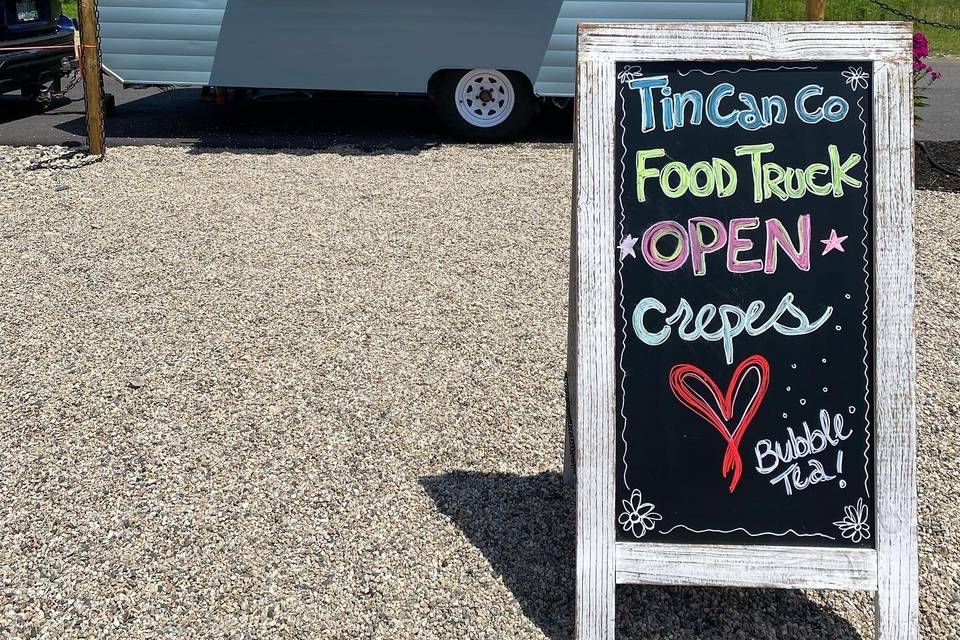 Tin Can Co
Food Truck
OPEN
crepes
Bubble
Tea!